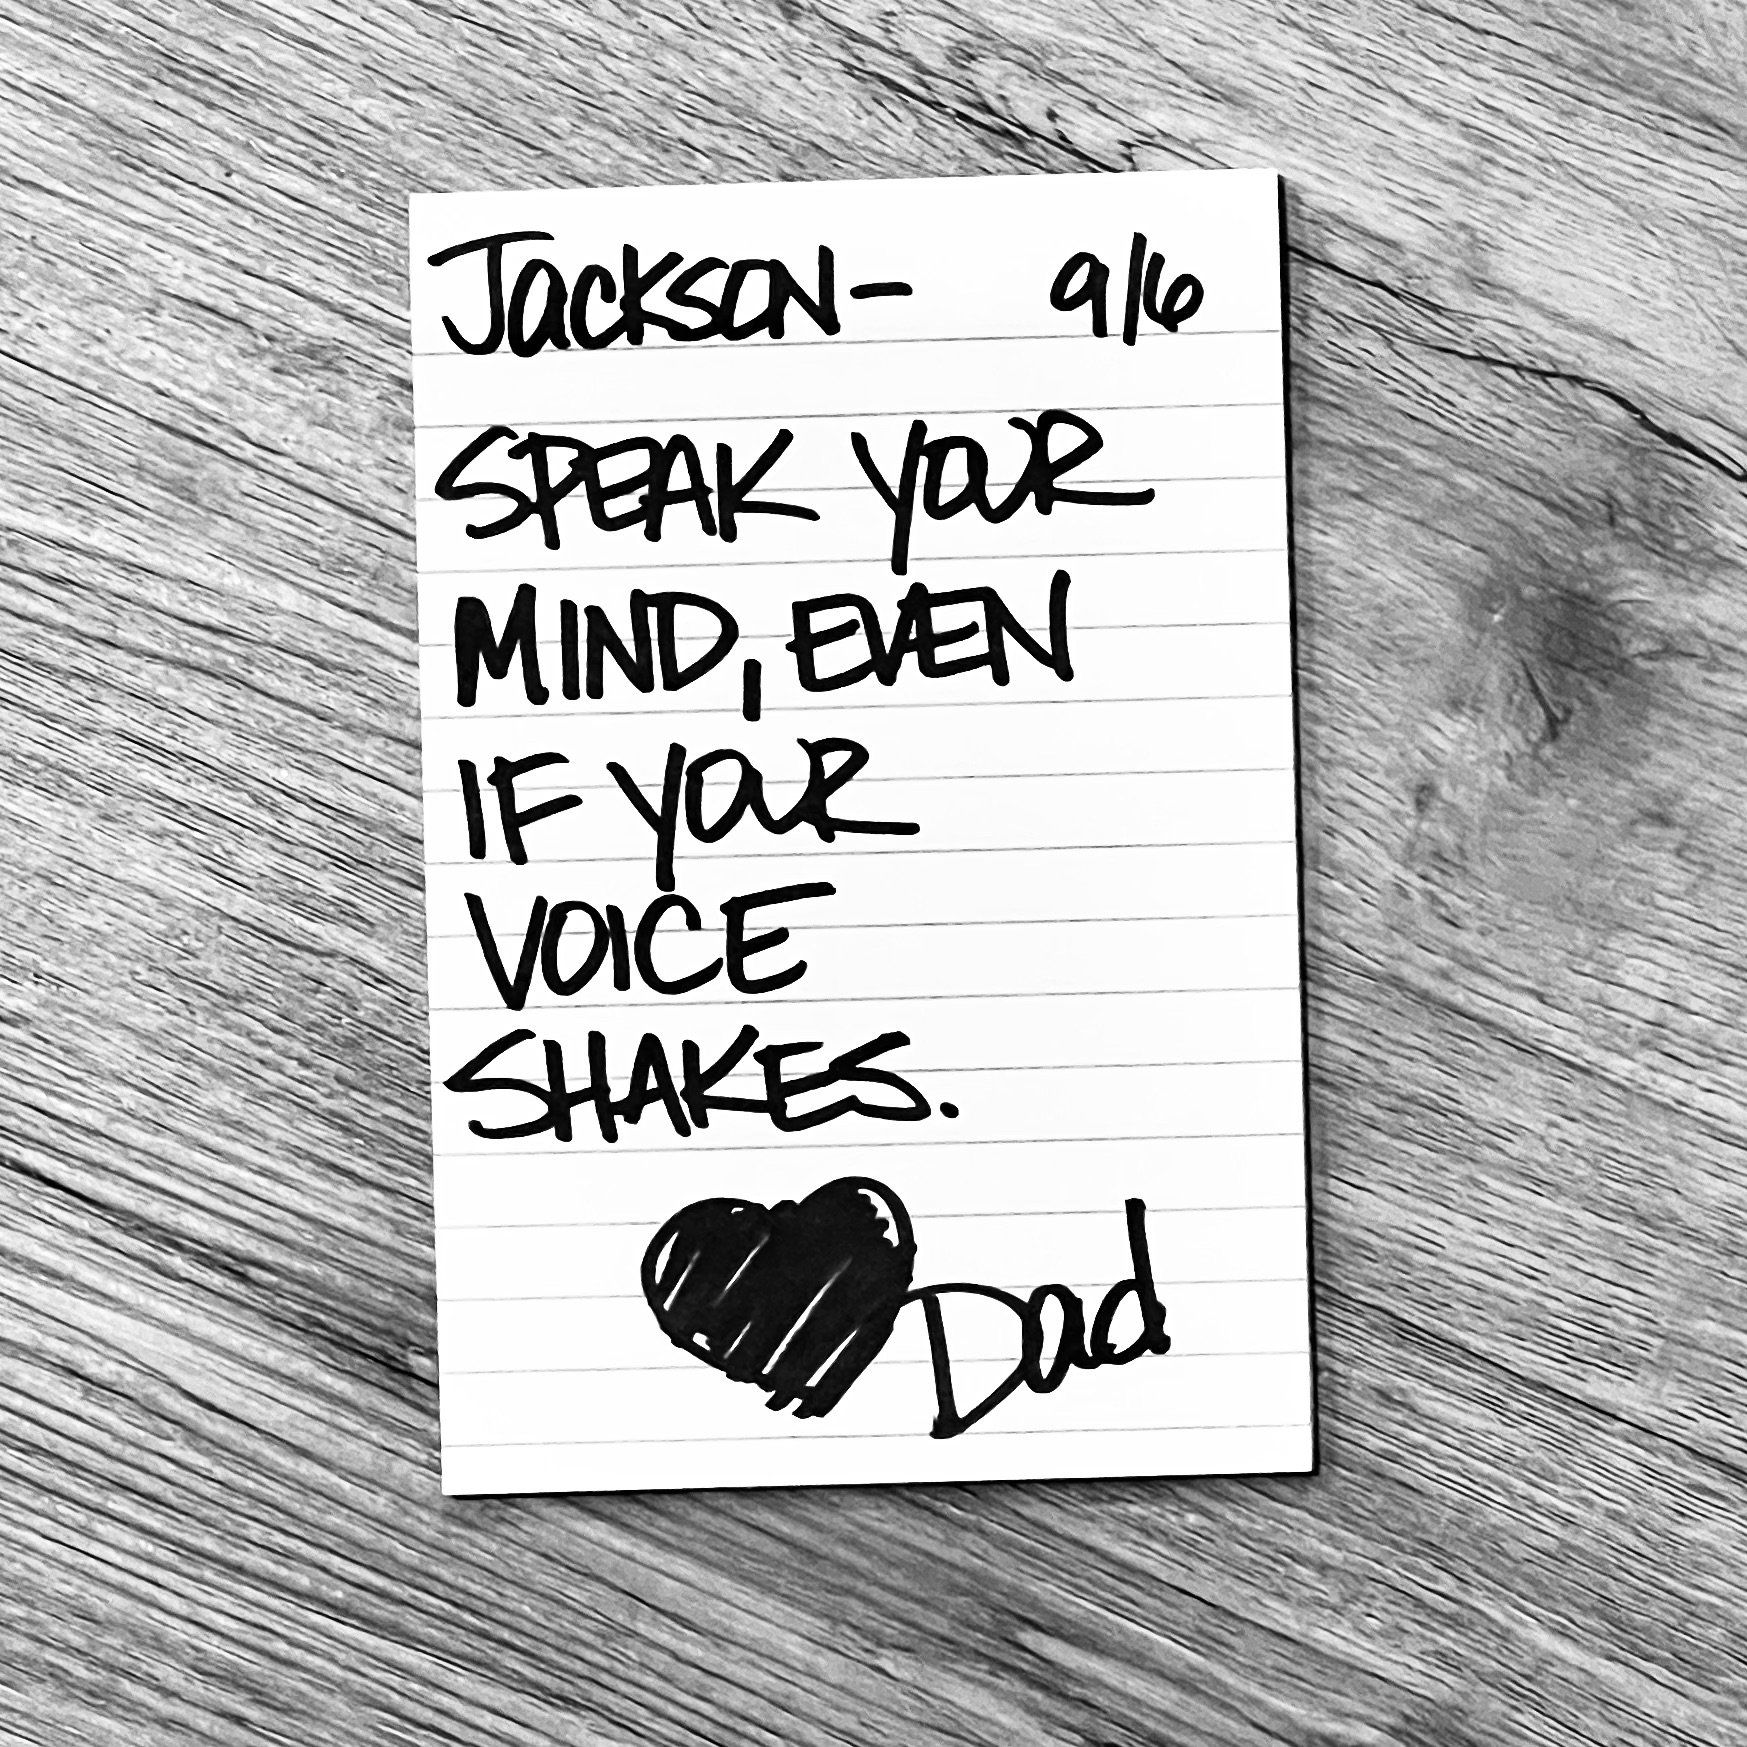 Jackson- 9/6
SPEAK YOUR
MIND, EVEN
IF YOUR
VOICE
SHAKES.
Dad